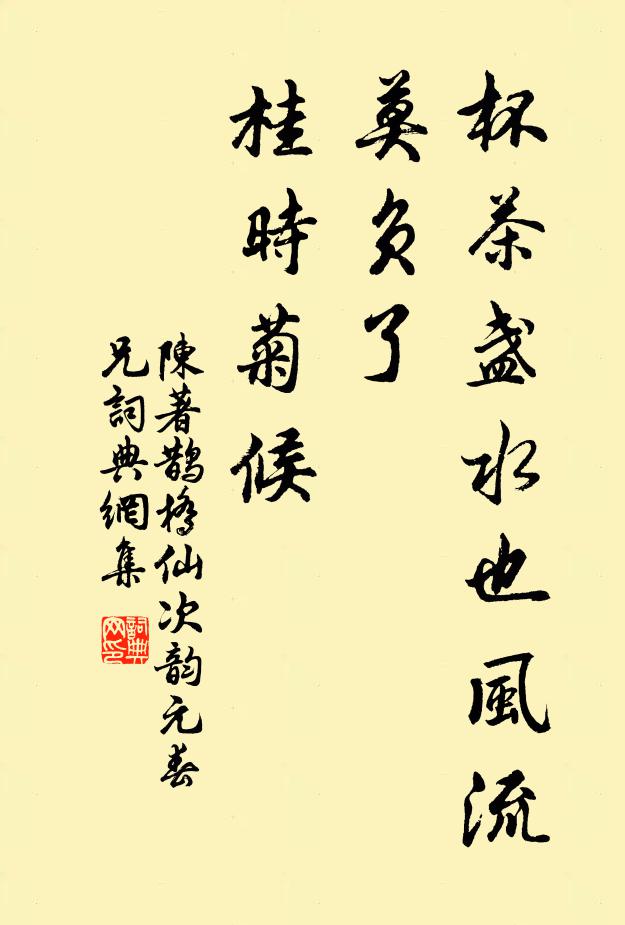 杯茶盞水也風流
莫負了
桂時菊候
陳著鵲橋仙次韵元春
兄詞典網集
詞典
网印